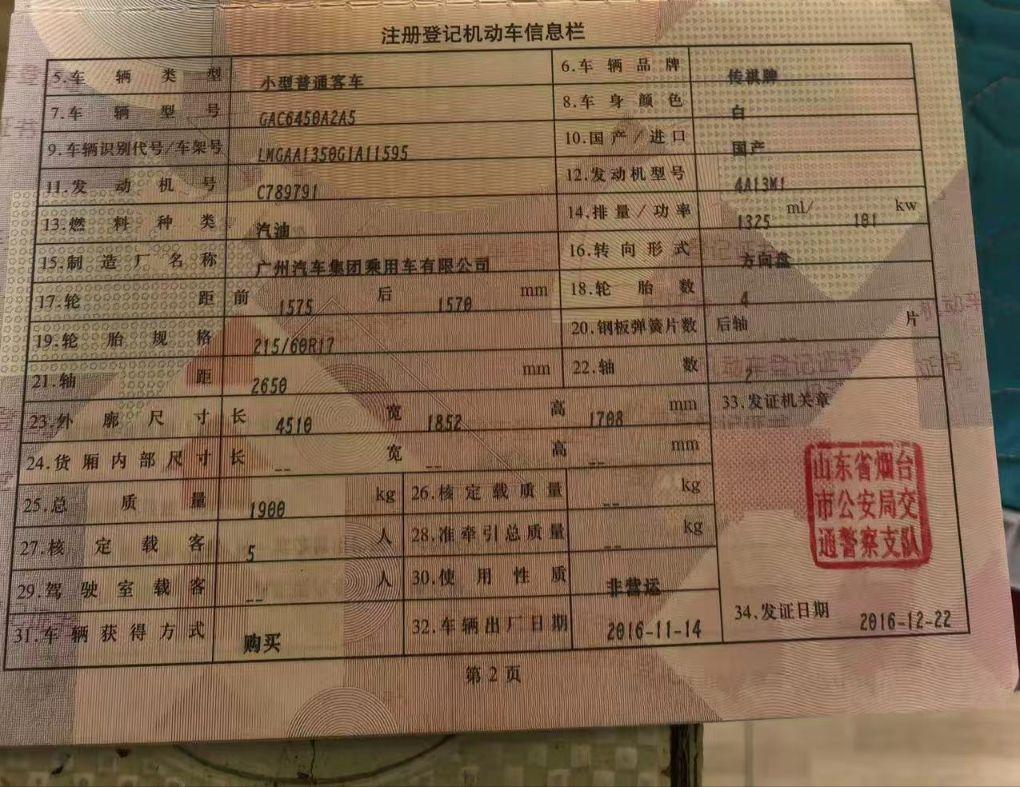 注册登记机动车信息栏
5.车辆类型 小型普通客车 6.车辆品牌 传祺牌
7.车辆型号 GAC6450A2A5 8.车身颜色 白
9.车辆识别代号/车架号 LMGAA1350G1A11595 10.国产/进口 国产
11.发动机号 C789791 12.发动机型号 4A13M1
13.燃料种类 汽油 14.排量/功率 1325 ml/ 101 kw
15.制造厂名称 广州汽车集团乘用车有限公司 16.转向形式 方向盘
17.轮距 前 1575 后 1570 mm 18.轮胎数 4
19.轮胎规格 215/60R17 20.钢板弹簧片数 后轴 -- 片
21.轴距 2650 mm 22.轴数 2
23.外廓尺寸 长 4510 宽 1852 高 1708 mm 33.发证机关章
24.货厢内部尺寸 长 -- 宽 -- 高 -- mm
25.总质量 1900 kg 26.核定载质量 -- kg
27.核定载客 5 人 28.准牵引总质量 -- kg
29.驾驶室载客 -- 人 30.使用性质 非营运
31.车辆获得方式 购买 32.车辆出厂日期 2016-11-14 34.发证日期 2016-12-22
山东省烟台
市公安局交
通警察支队
第2页